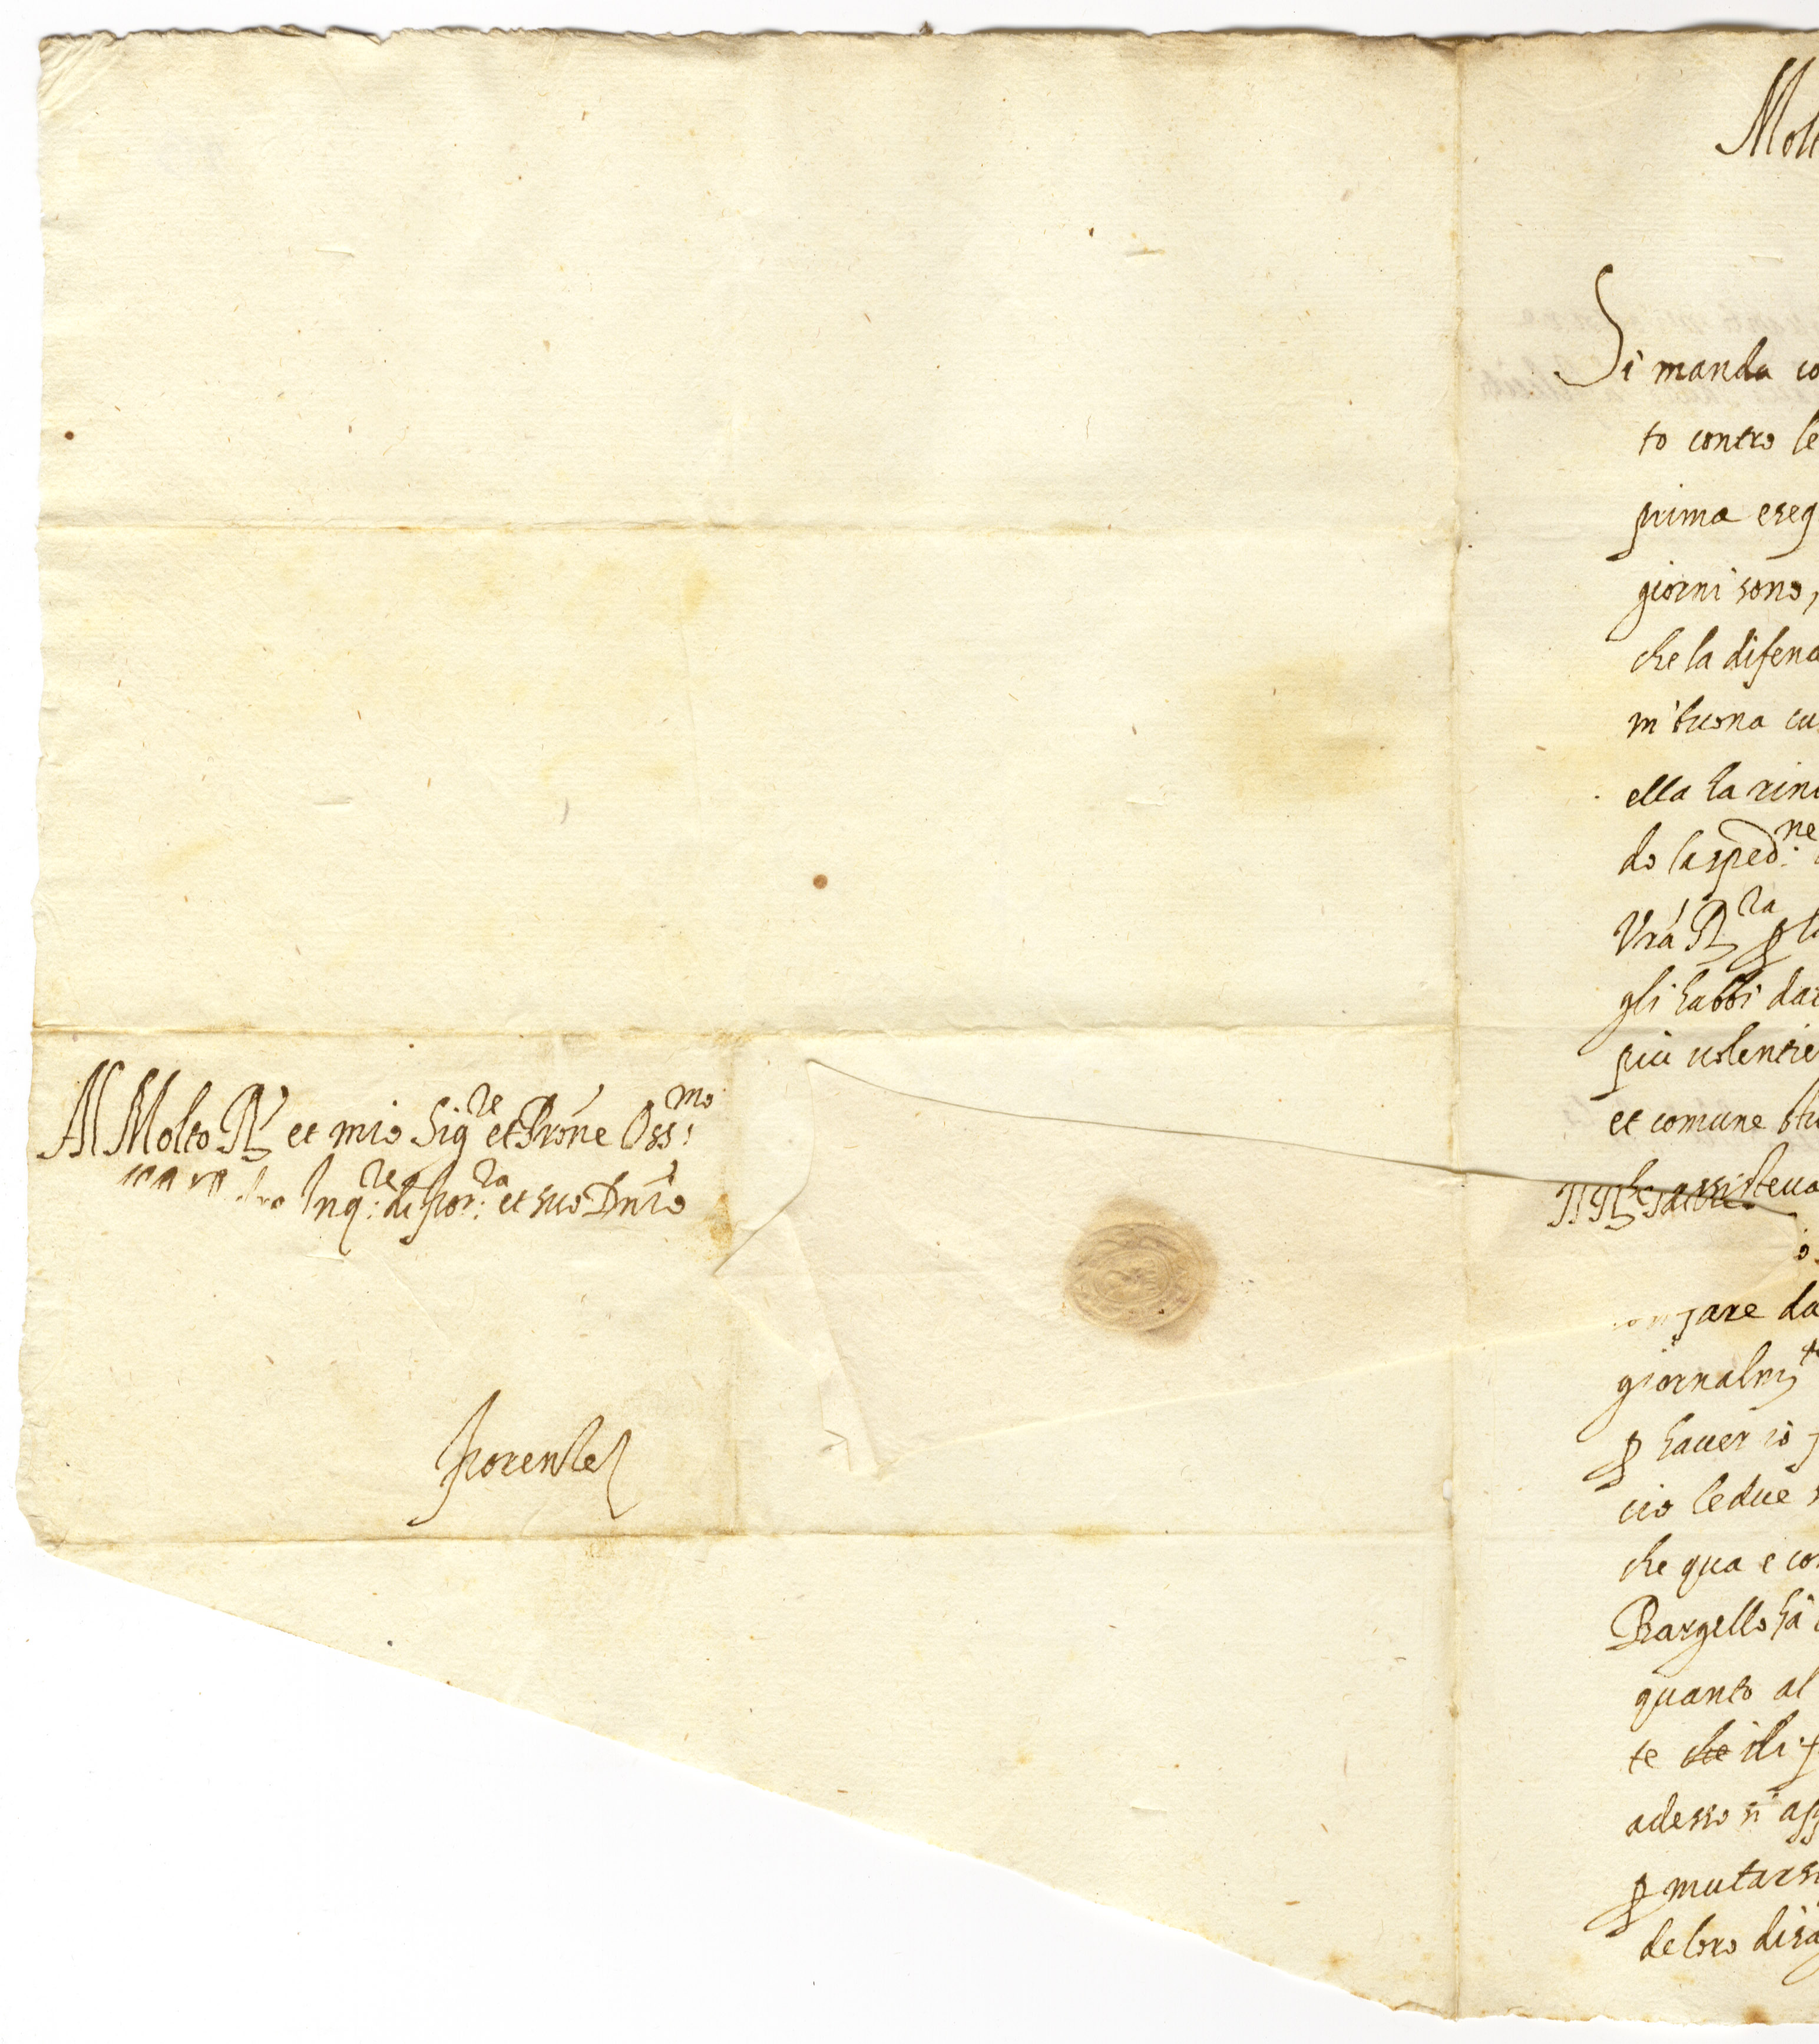 Al Molto R. et mio Sig.re et Prone Oss.mo
Inq.re di Fior.za et suo Dnio
Fiorenza
Molt
Si manda co
to contro le
prima eseg
giorni sono,
che la difena
in buona cu
ella la rin
do la sped.ne
Vra R.za p la
gli habbi dat
più volentie
et comune
Il R. assisteva
o.
zare da
giornalm.te
p haver io
cio le due
che qua e co
Bargello ha
quanto al
te che ili
adesso si
p mutarsi
de loro disa